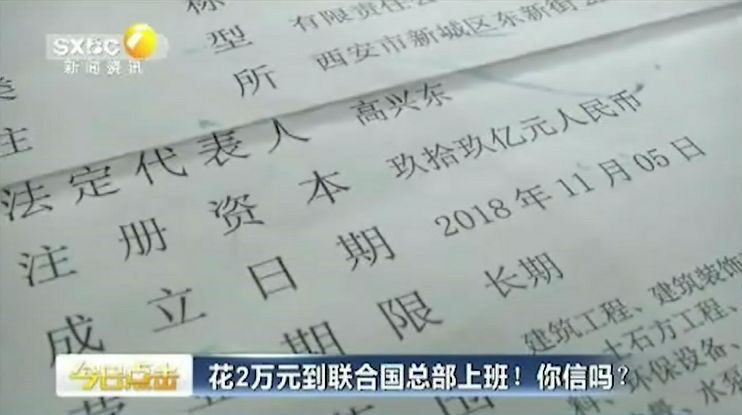 SXBC
新闻资讯
称
型 有限责任公
所 西安市新城区东新街
类
住
法定代表人 高兴东
注册资本 玖拾玖亿元人民币
成立日期 2018年11月05日
期限 长期
建筑工程、建筑装饰
土石方工程、
环保设备、
水泵
今日点击
花2万元到联合国总部上班！你信吗？